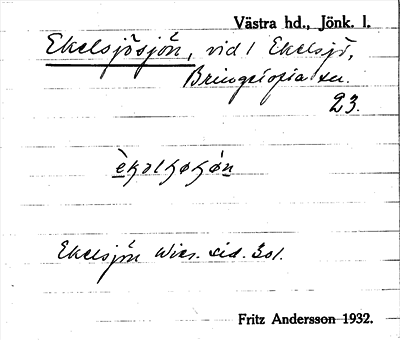 Västra hd., Jönk. l.
Ekelsjösjön, vid 1 Ekelsjö,
Bringetofta sn.
23.
Ekelsjön Wies. sid. 301.
Fritz Andersson 1932.